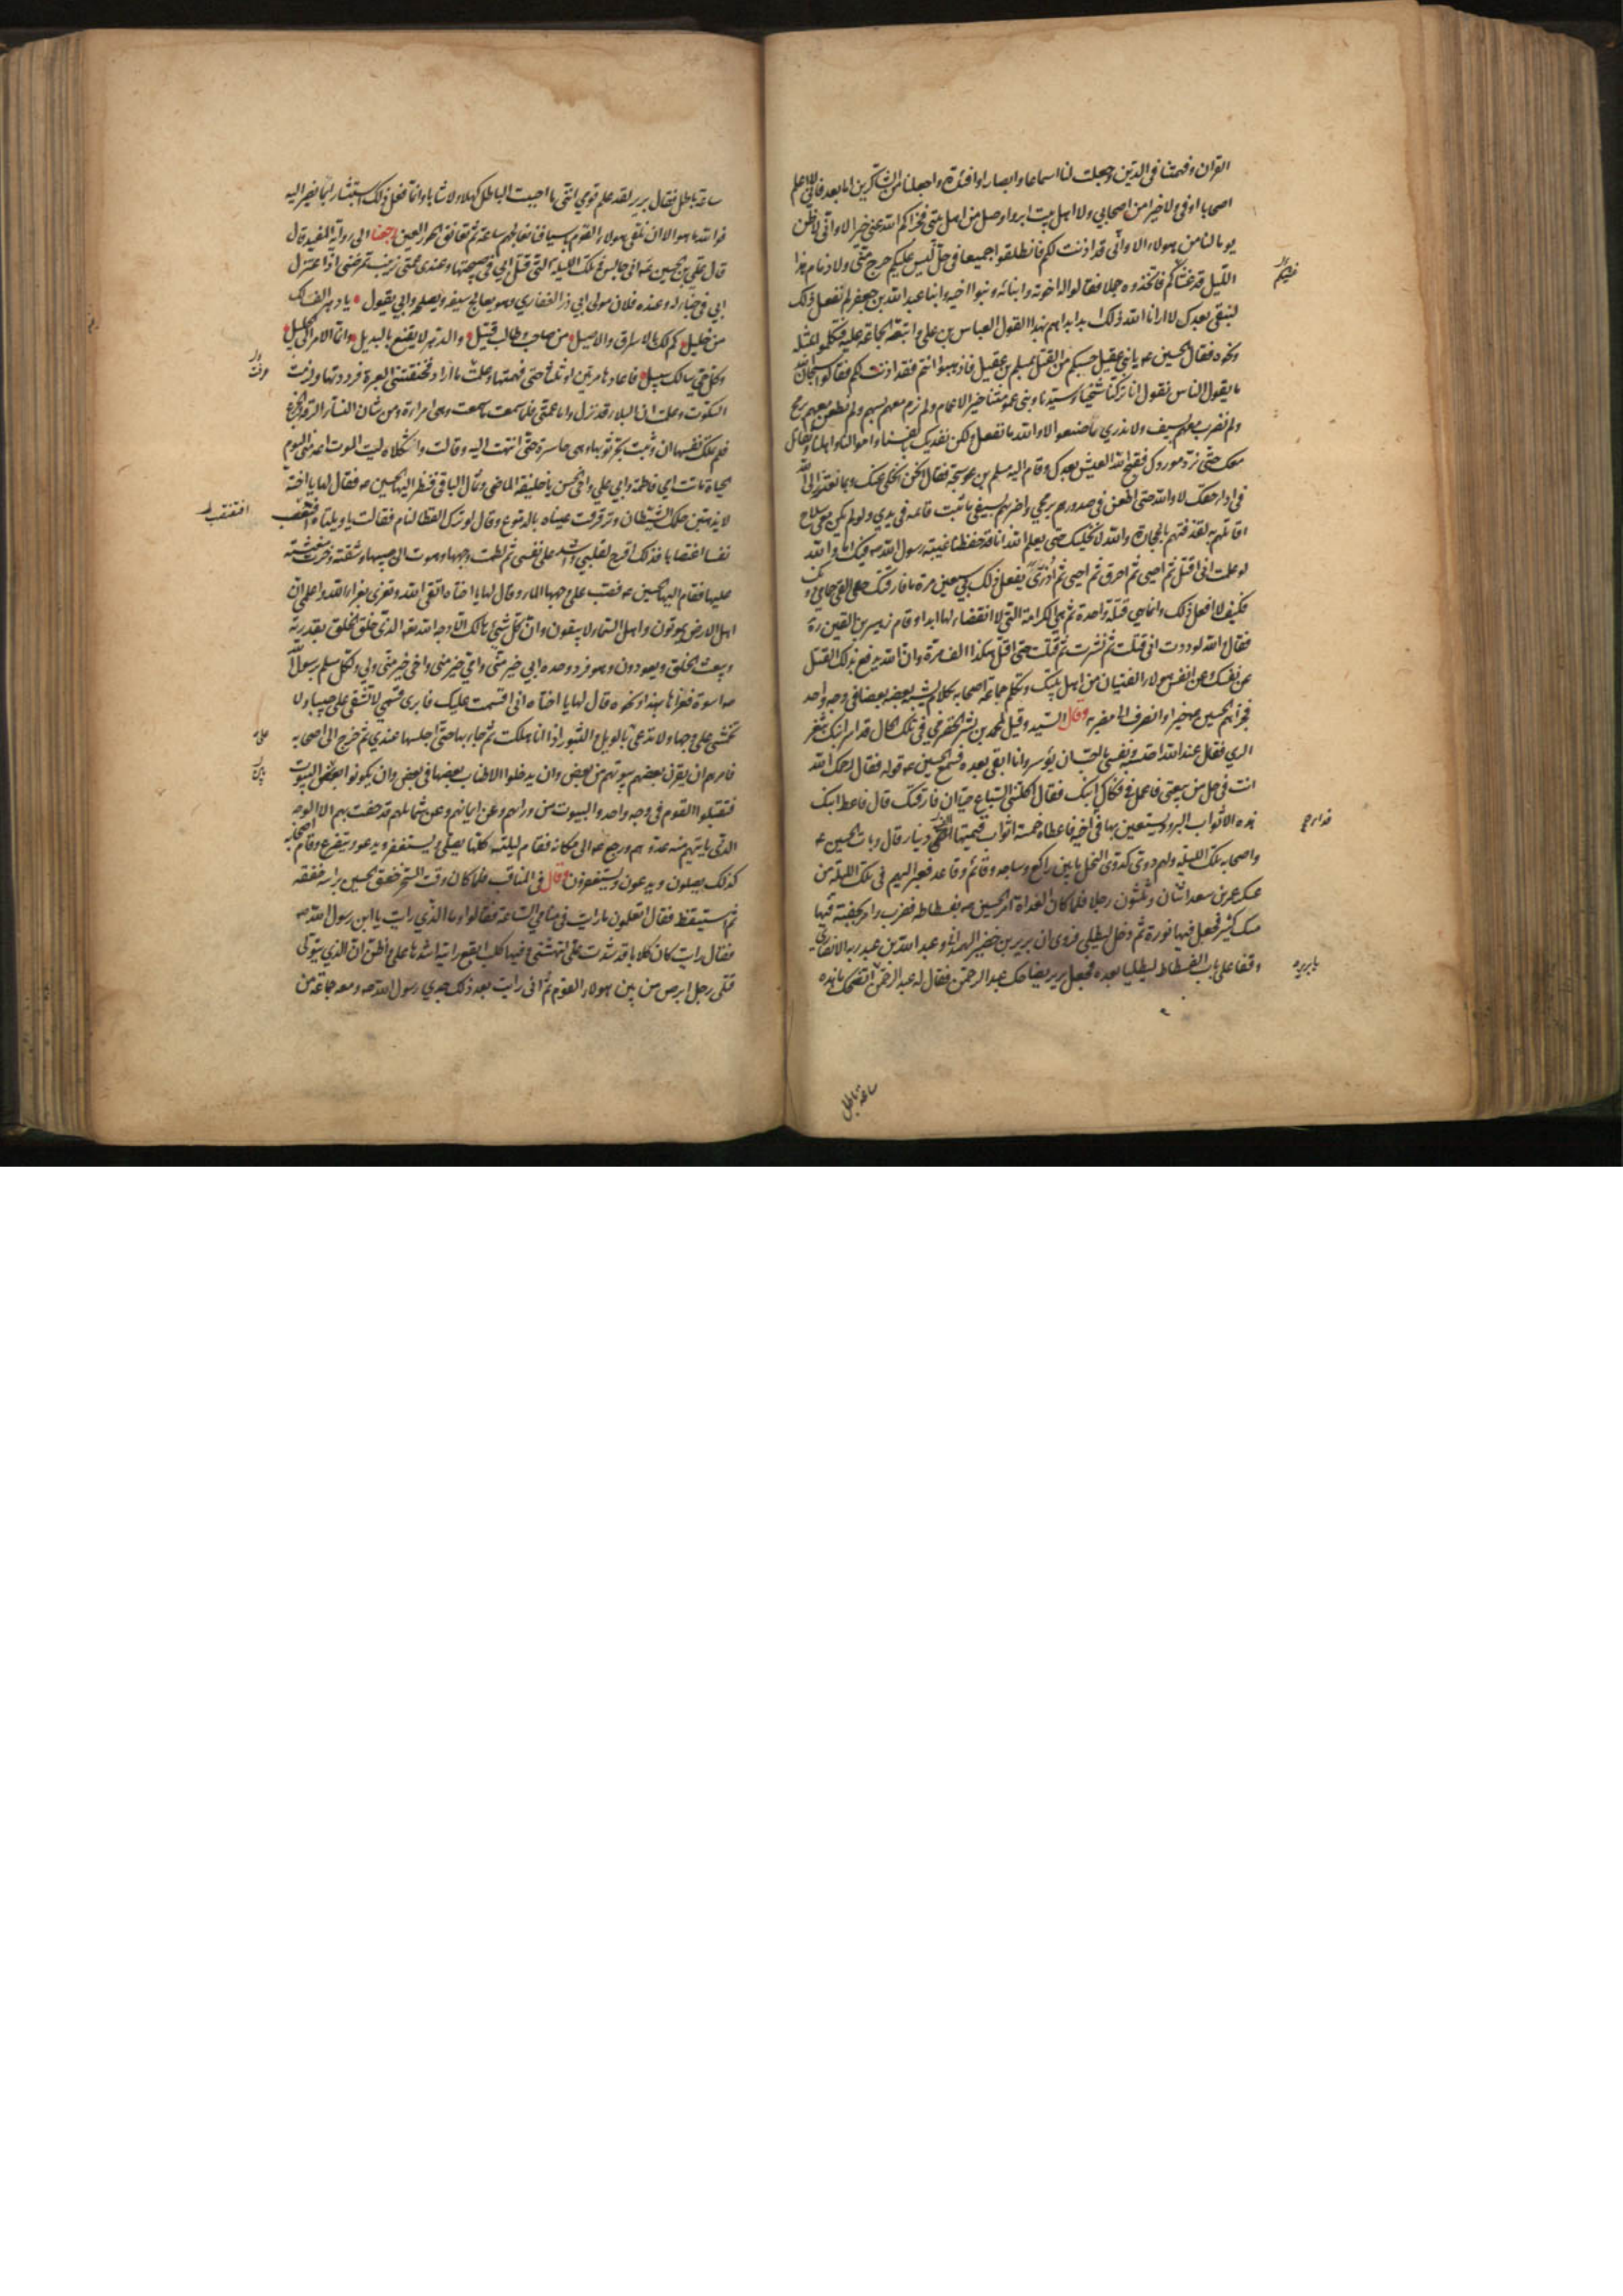 القران وفهمتنا فى الدين وجعلت لنا اسماعا وابصارا وافئدة واجعلنا من الشاكرين اما بعد فانى لا اعلم
اصحابا اوفى ولا خيرا من اصحابي ولا اهل بيت ابر واوصل من اهل بيتى فجزاكم الله عنى خيرا الا وانى لاظن
يوما لنا من هولاء الا وانى قد اذنت لكم فانطلقوا جميعا فى حل ليس عليكم حرج منى ولا ذمام هذا
الليل قد غشاكم فاتخذوه جملا فقالوا له اخوته وابنائه وبنوا اخيه وابنا عبد الله بن جعفر لم نفعل ذلك
لنبقى بعدك لا ارانا الله ذلك ابدا بداهم بهذا القول العباس بن على واتبعته الجماعة عليه فتكلموا بمثله
ونحوه فقال الحسين ع يا بنى عقيل حسبكم من القتل بمسلم بن عقيل فاذهبوا انتم فقد اذنت لكم فقالوا سبحان الله
ما يقول الناس نقول انا تركنا شيخنا وسيدنا وبنى عمومتنا خير الاعمام ولم نرم معهم بسهم ولم نطعن معهم برمح
ولم نضرب معهم بسيف ولا ندري ما صنعوا لا والله ما نفعل ولكن نفديك بانفسنا واموالنا واهلنا ونقاتل
معك حتى نرد موردك فقبح الله العيش بعدك وقام اليه مسلم بن عوسجه فقال انحن نخلى عنك وبما نعتذر الى الله
فى اداء حقك لا والله حتى اطعن فى صدورهم برمحي واضربهم بسيفى ما ثبت قائمه فى يدي ولو لم يكن معى سلاح
اقاتلهم به لقذفتهم بالحجارة والله لا نخليك حتى يعلم الله انا قد حفظنا غيبة رسول الله ص فيك اما والله
لو علمت انى اقتل ثم احيى ثم احرق ثم احيى ثم اذرى يفعل ذلك بي سبعين مرة ما فارقتك حتى القى حمامي
فكيف لا افعل ذلك وانما هي قتلة واحدة ثم هى الكرامة التى لا انقضاء لها ابدا وقام زهير بن القين ره
فقال والله لوددت انى قتلت ثم نشرت ثم قتلت حتى اقتل هكذا الف مرة وان الله يدفع بذلك القتل
عن نفسك وعن انفس هولاء الفتيان من اهل بيتك وتكلم جماعة اصحابه بكلام يشبه بعضه بعضا فى وجه واحد
فجزاهم الحسين ع خيرا وانصرف الى مضربه وقال السيد وقيل لمحمد بن بشر الحضرمى فى تلك الحال قد اسر ابنك بثغر
الري فقال عند الله احتسبه ونفسى ما احب ان يؤسر وانا ابقى بعده فسمع الحسين ع قوله فقال رحمك الله
انت فى حل من بيعتى فاعمل فى فكاك ابنك فقال اكلتنى السباع حيا ان فارقتك قال فاعط ابنك
هذه الاثواب البرود يستعين بها فى فداء اخيه فاعطاه خمسة اثواب قيمتها الف دينار قال وبات الحسين ع
واصحابه تلك الليلة ولهم دوى كدوى النحل ما بين راكع وساجد وقائم وقاعد فعبر اليهم فى تلك الليلة من
عسكر عمر بن سعد اثنان وثلثون رجلا فلما كان الغداة امر الحسين ع بفسطاطه فضرب وامر بجفنة فيها
مسك كثير فجعل فيها نورة ثم دخل ليطلى فروى ان برير بن خضير الهمدانى وعبد الرحمن بن عبد ربه الانصارى
وقفا على باب الفسطاط ليطليا بعده فجعل برير يضاحك عبد الرحمن فقال له عبد الرحمن اتضحك ما هذه
ساعة باطل
ساعة باطل فقال برير لقد علم قومي اننى ما احببت الباطل كهلا ولا شابا وانما نفعل ذلك استبشارا بما نصير اليه
فوالله ما هو الا ان نلقى هولاء القوم باسيافنا نعالجهم ساعة ثم نعانق الحور العين رجعنا الى رواية المفيد قال
قال على بن الحسين ع انى جالس فى تلك الليلة التى قتل ابى فى صبيحتها وعندى عمتى زينب تمرضنى اذ اعتزل
ابي فى خباء له وعنده فلان مولى ابي ذر الغفاري وهو يعالج سيفه ويصلحه وابي يقول يا دهر اف لك
من خليل كم لك بالاشراق والاصيل من صاحب وطالب قتيل والدهر لا يقنع بالبديل وانما الامر الى الجليل
وكل حي سالك سبيلى فاعادها مرتين او ثلثا حتى فهمتها وعلمت ما اراد فخنقتنى العبرة فرددتها ولزمت
السكوت وعلمت ان البلاء قد نزل واما عمتى فلما سمعت ما سمعت وهى امراة ومن شان النساء الرقة والجزع
فلم تملك نفسها ان وثبت تجر ثوبها وهى حاسرة حتى انتهت اليه وقالت واثكلاه ليت الموت اعدمنى اليوم
الحياة ماتت امي فاطمة وابي علي واخى الحسن يا خليفة الماضى وثمال الباقى فنظر اليها الحسين ع فقال لها يا اخته
لا يذهبن حلمك الشيطان وترقرقت عيناه بالدموع وقال لو ترك القطا لنام فقالت يا ويلتاه افتغتصب
نفسك اغتصابا فذلك اقرح لقلبي واشد على نفسى ثم لطمت وجهها وهوت الى جيبها وشقته وخرت مغشية
عليها فقام اليها الحسين ع فصب على وجهها الماء وقال لها يا اختاه اتقى الله وتعزى بعزاء الله واعلمى ان
اهل الارض يموتون واهل السماء لا يبقون وان كل شئ هالك الا وجه الله تعه الذى خلق الخلق بقدرته
ويبعث الخلق ويعودون وهو فرد وحده ابي خير منى وامي خير منى واخى خير منى ولي ولكل مسلم برسول الله
ص اسوة فعزاها بهذا ونحوه وقال لها يا اختاه انى اقسمت عليك فابرى قسمى لا تشقى على جيبا ولا
تخمشى على وجها ولا تدعى بالويل والثبور اذا انا هلكت ثم جاء بها حتى اجلسها عندي ثم خرج الى اصحابه
فامرهم ان يقرن بعضهم بيوتهم من بعض وان يدخلوا الاطناب بعضها فى بعض وان يكونوا بين البيوت
فتقبلوا القوم فى وجه واحد والبيوت من ورائهم وعن ايمانهم وعن شمائلهم قد حفت بهم الا الوجه
الذى ياتيهم منه عدوهم ورجع ع الى مكانه فقام ليلته كلها يصلي ويستغفر ويدعو ويتضرع وقام اصحابه
كذلك يصلون ويدعون ويستغفرون وقال فى المناقب فلما كان وقت السحر خفق الحسين براسه خفقة
ثم استيقظ فقال اتعلمون ما رايت فى منامي الساعة فقالوا وما الذي رايت يا ابن رسول الله ص
فقال رايت كان كلابا قد شدت على لتنهشنى وفيها كلب ابقع رايته اشدها على واظن ان الذي يتولى
قتلى رجل ابرص من بين هولاء القوم ثم انى رايت بعد ذلك جدي رسول الله ص ومعه جماعة من